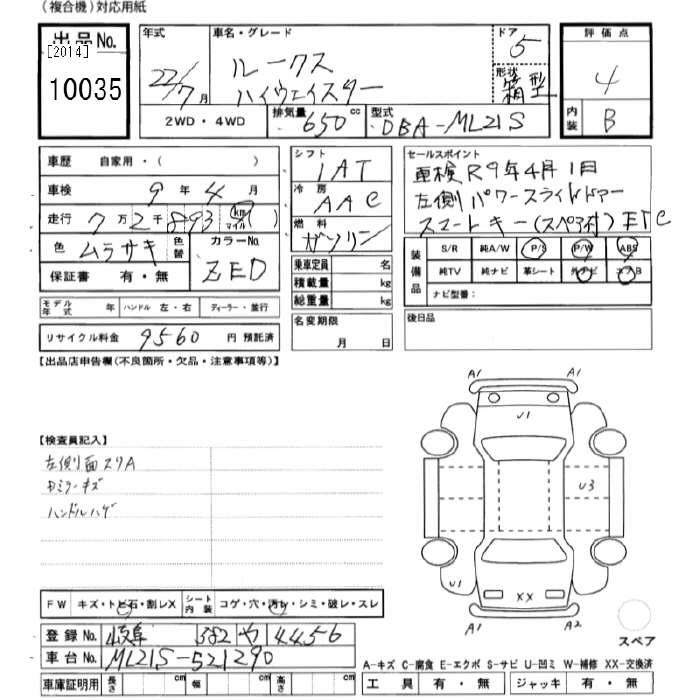 (複合機)対応用紙
出品No.
[2014]
10035
年式
22/7月
車名・グレード
ルークス
ハイウェイスター
ドア
5
形状
箱型
2WD・4WD
排気量 650 cc
型式 DBA-ML21S
評価点
4
内装 B
車歴 自家用・( )
車検 9年4月
走行 7万2千893 km マイル ( )
色 ムラサキ 色替
カラーNo. ZED
保証書 有・無
シフト
IAT
冷房
AAC
燃料
ガソリン
乗車定員 名
積載量 kg
総重量 kg
セールスポイント
車検R9年4月1日
左側パワースライドドアー
スマートキー(スペア付)ETC
装備品
S/R 純A/W P/S P/W ABS
純TV 純ナビ 革シート 外ナビ エアB
ナビ型番:
モデル年式 年 ハンドル 左・右 ディーラー・並行
リサイクル料金 9560 円 預託済
名変期限
月 日
後日品
【出品店申告欄(不良箇所・欠品・注意事項等)】
【検査員記入】
左側面スリA
ミラーキズ
ハンドルハゲ
A1 A1
U1
U3
U1
XX
A1 A2
スペア
FW キズ・トビ石・割レX
シート内装 コゲ・穴・汚レ・シミ・破レ・スレ
登録No. 岐阜 582 や 4456
車台No. ML21S-521290
車庫証明用 長さ cm 幅 cm 高さ cm
A-キズ C-腐食 E-エクボ S-サビ U-凹ミ W-補修 XX-交換済
工具 有・無 ジャッキ 有・無